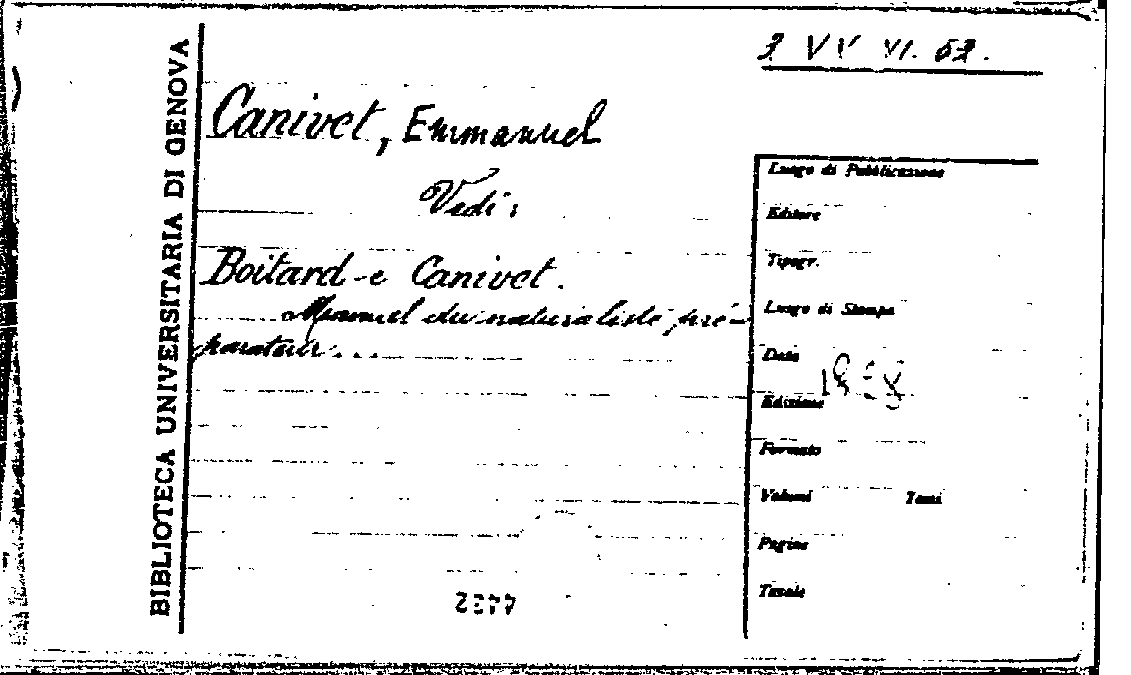 BIBLIOTECA UNIVERSITARIA DI GENOVA
3 VV VI. 63.
Canivet, Emmanuel
Vedi:
Boitard e Canivet.
Manuel du naturaliste pré-
parateur...
Luogo di Pubblicazione
Editore
Tipogr.
Luogo di Stampa
Data
Edizione
Formato
Volumi Tomi
Pagine
Tavole